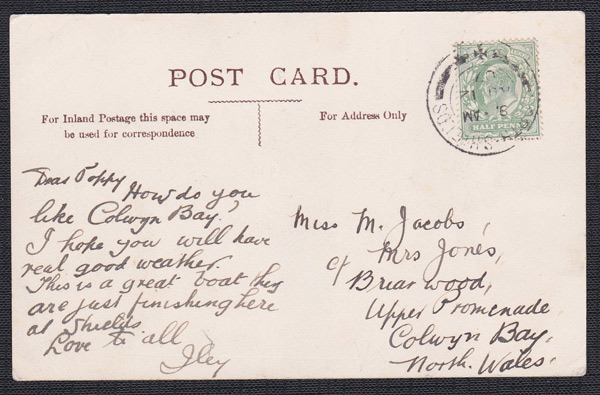 POST CARD.
For Inland Postage this space may
be used for correspondence
For Address Only
HALF PENNY
Dear Poppy
How do you
like Colwyn Bay?
I hope you will have
real good weather.
This is a great boat they
are just finishing here
at Shields.
Love to all
Miss M. Jacobs
Mrs Jones,
Briarwood,
Upper Promenade
Colwyn Bay,
North. Wales.